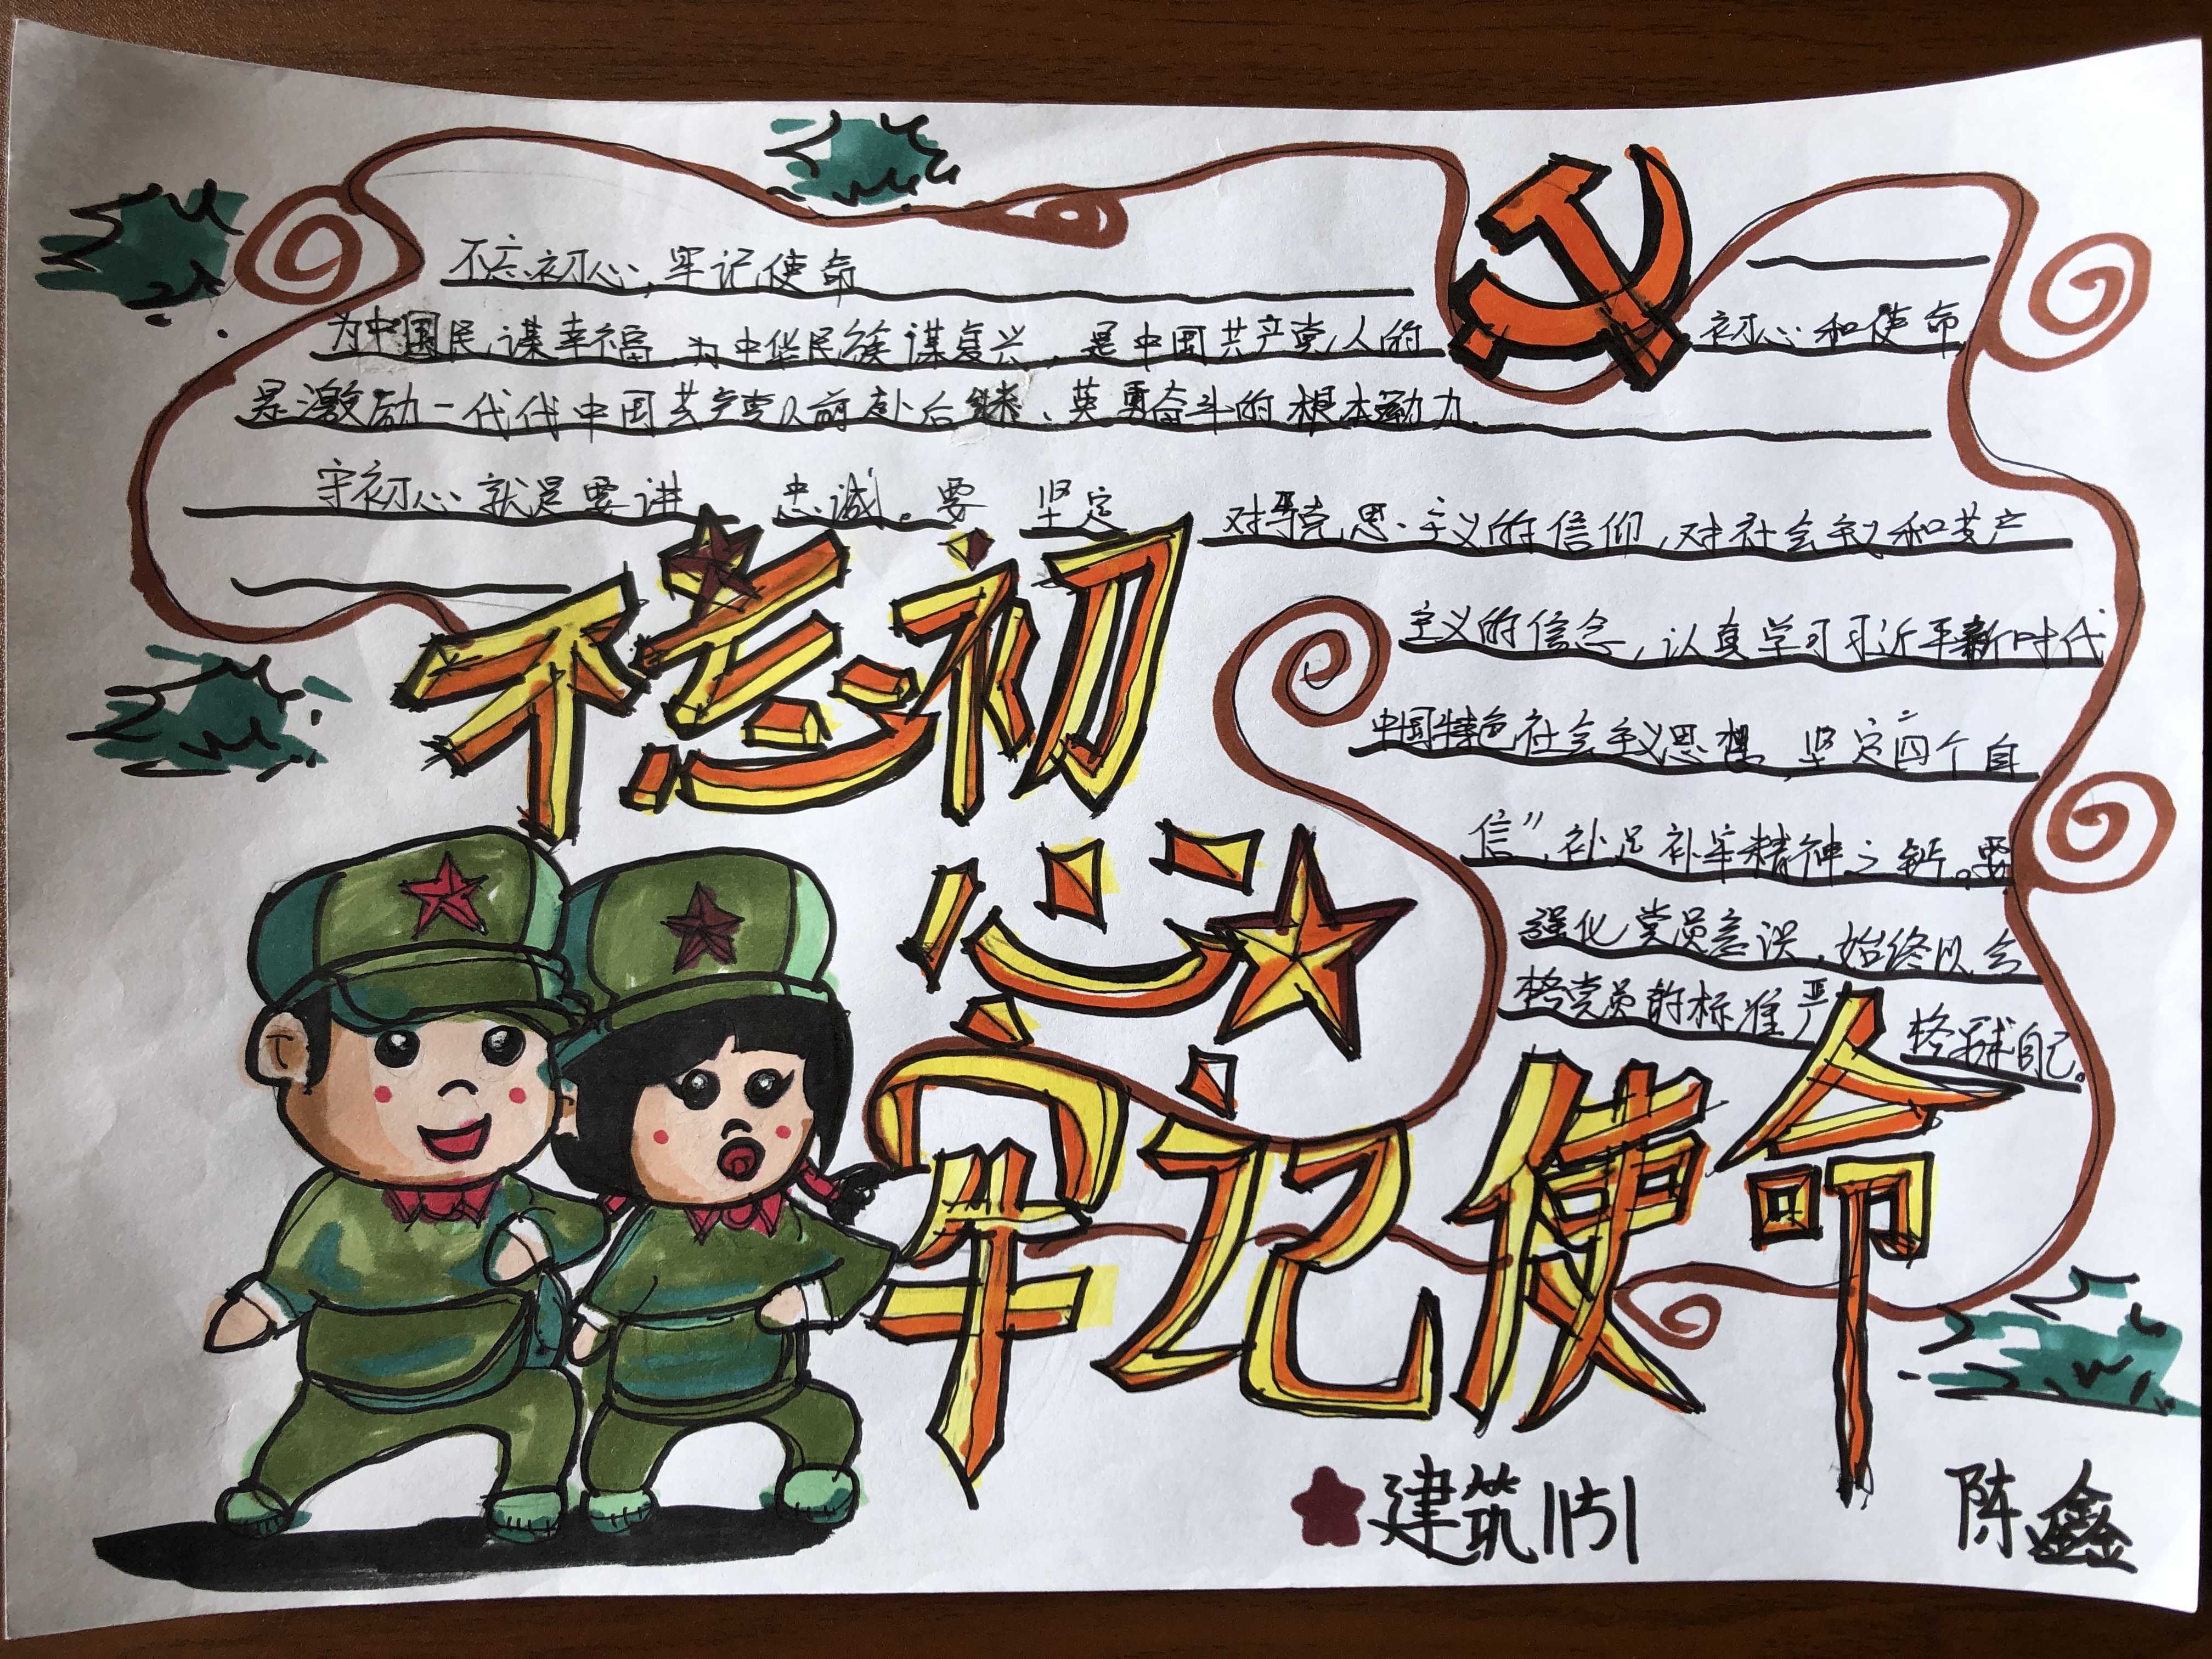 不忘初心，牢记使命
为中国民谋幸福，为中华民族谋复兴，是中国共产党人的初心和使命
是激励一代代中国共产党人前赴后继、英勇奋斗的根本动力.
守初心就是要讲 忠诚。要 坚定 对马克思主义的信仰，对社会主义和共产
主义的信念，认真学习习近平新时代
中国特色社会主义思想，坚定四个自
信”，补足补牢精神之钙。要
强化党员意识，始终以合
格党员的标准严 格要求自己。
不忘初
心
牢记使命
建筑1151
陈鑫